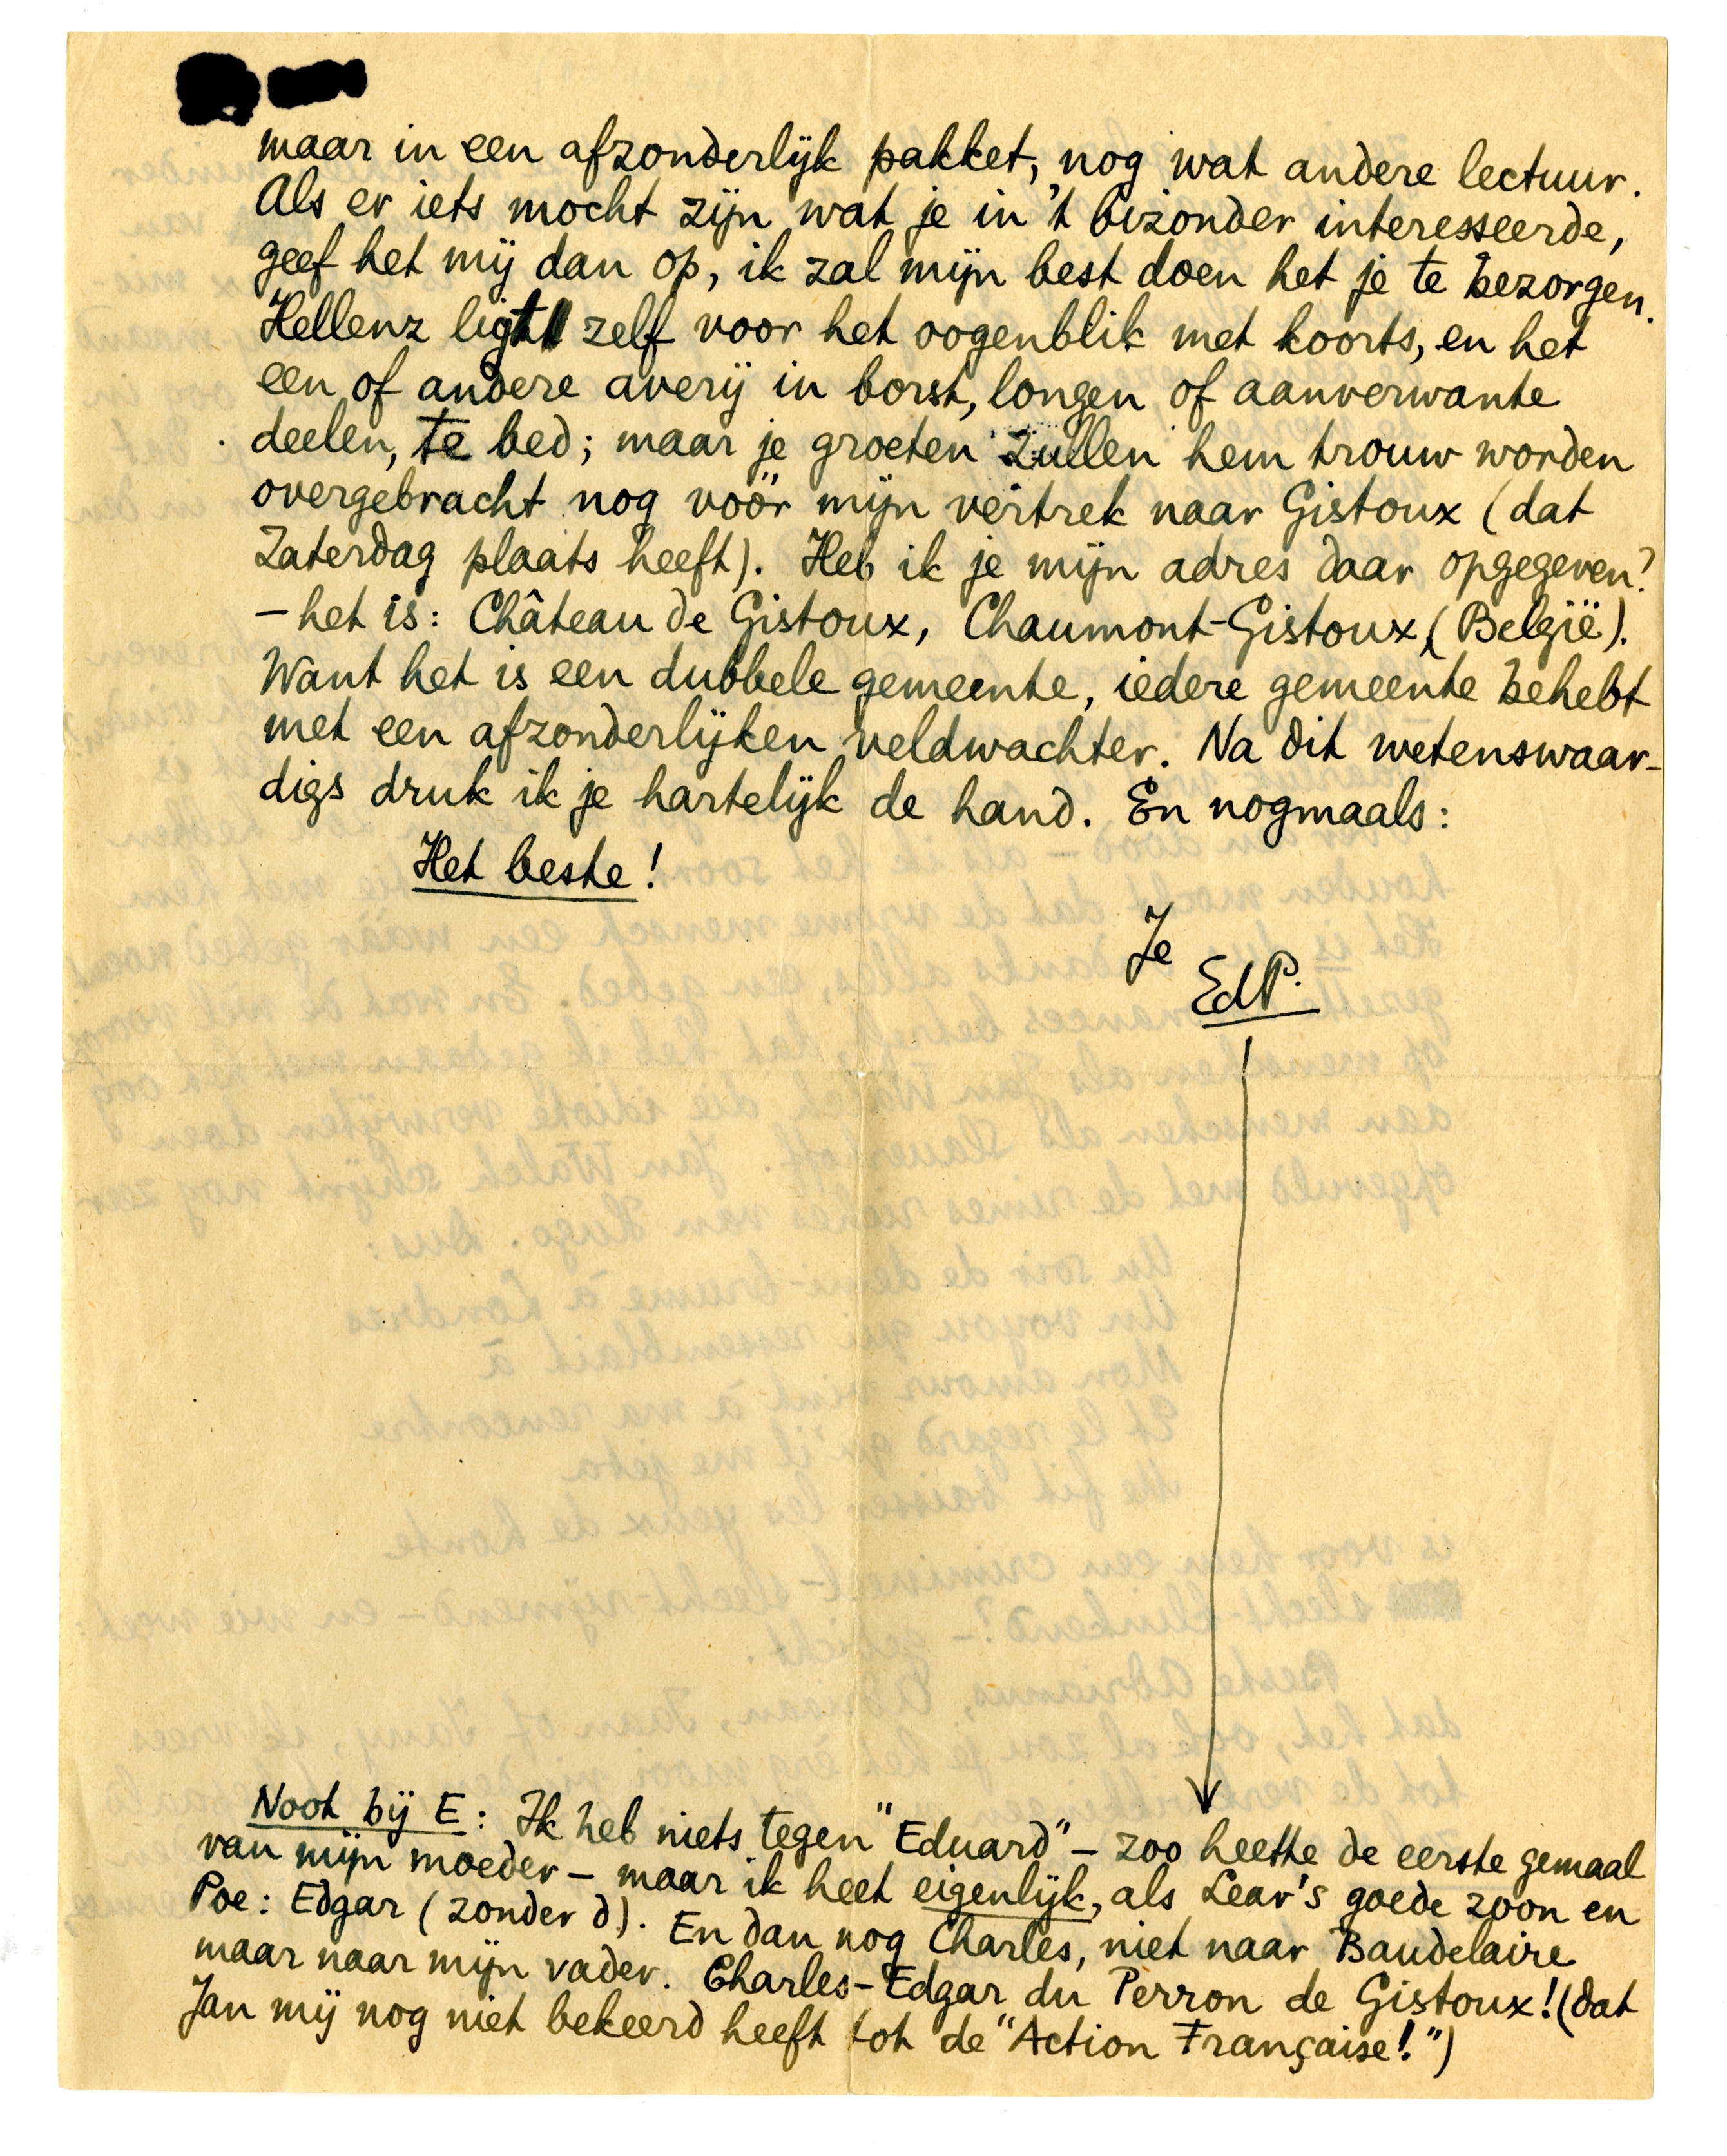 maar in een afzonderlijk pakket, nog wat andere lectuur.
Als er iets mocht zijn wat je in 't bizonder interesseerde,
geef het mij dan op, ik zal mijn best doen het je te bezorgen.
Hellenz ligt zelf voor het oogenblik met koorts, en het
een of andere averij in borst, longen of aanverwante
deelen, te bed; maar je groeten zullen hem trouw worden
overgebracht nog vóór mijn vertrek naar Gistoux (dat
Zaterdag plaats heeft). Heb ik je mijn adres daar opgegeven?
— het is: Château de Gistoux, Chaumont-Gistoux, (België).
Want het is een dubbele gemeente, iedere gemeente behebt
met een afzonderlijken veldwachter. Na dit wetenswaar-
digs druk ik je hartelijk de hand. En nogmaals:
Het beste!
Je
EdP.
Noot bij E: Ik heb niets tegen "Eduard" — zoo heette de eerste gemaal
van mijn moeder — maar ik heet eigenlijk, als Lear's goede zoon en
Poe: Edgar (zonder d). En dan nog Charles, niet naar Baudelaire
maar naar mijn vader. Charles-Edgar du Perron de Gistoux! (dat
Jan mij nog niet bekeerd heeft tot de "Action Française!")